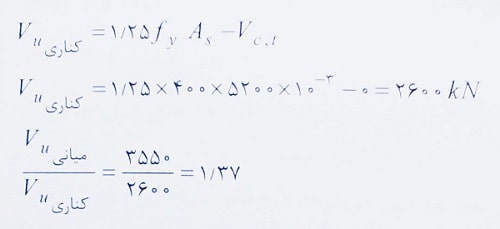 V u کناری = ۱/۲۵ f y A s − V c,t
V u کناری = ۱/۲۵ × ۴۰۰ × ۵۲۰۰ × ۱۰^−۳ − ۰ = ۲۶۰۰ kN
V u میانی / V u کناری = ۳۵۵۰ / ۲۶۰۰ = ۱/۳۷